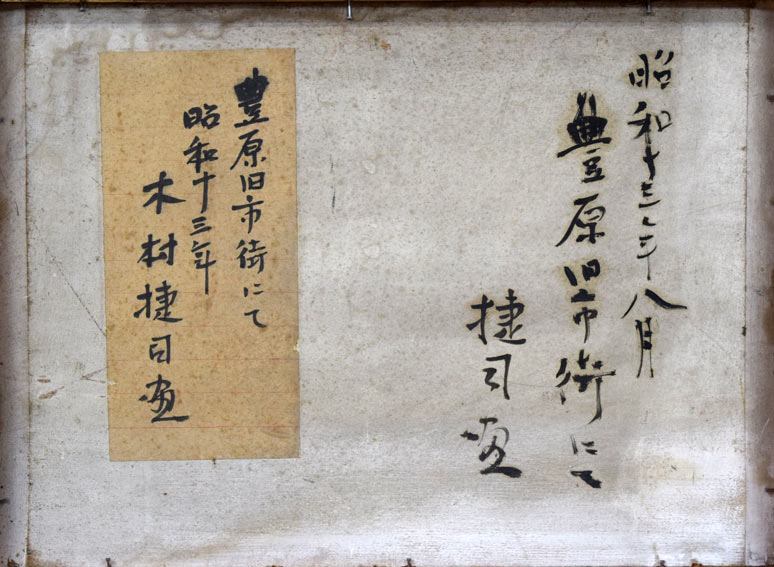 昭和十三年八月
豊原旧市街にて
捷司画
豊原旧市街にて
昭和十三年
木村捷司画